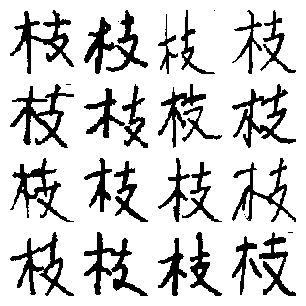 枝枝枝枝
枝枝枝枝
枝枝枝枝
枝枝枝枝